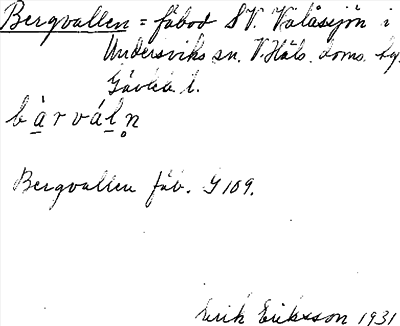 Bergvallen = fäbod SV. Valåsjön i
Undersviks sn. V. Häls. doms. sg.
Gävleb. l.
bàrváln̥
Bergvallen fäb. G 109.
Erik Eriksson 1931